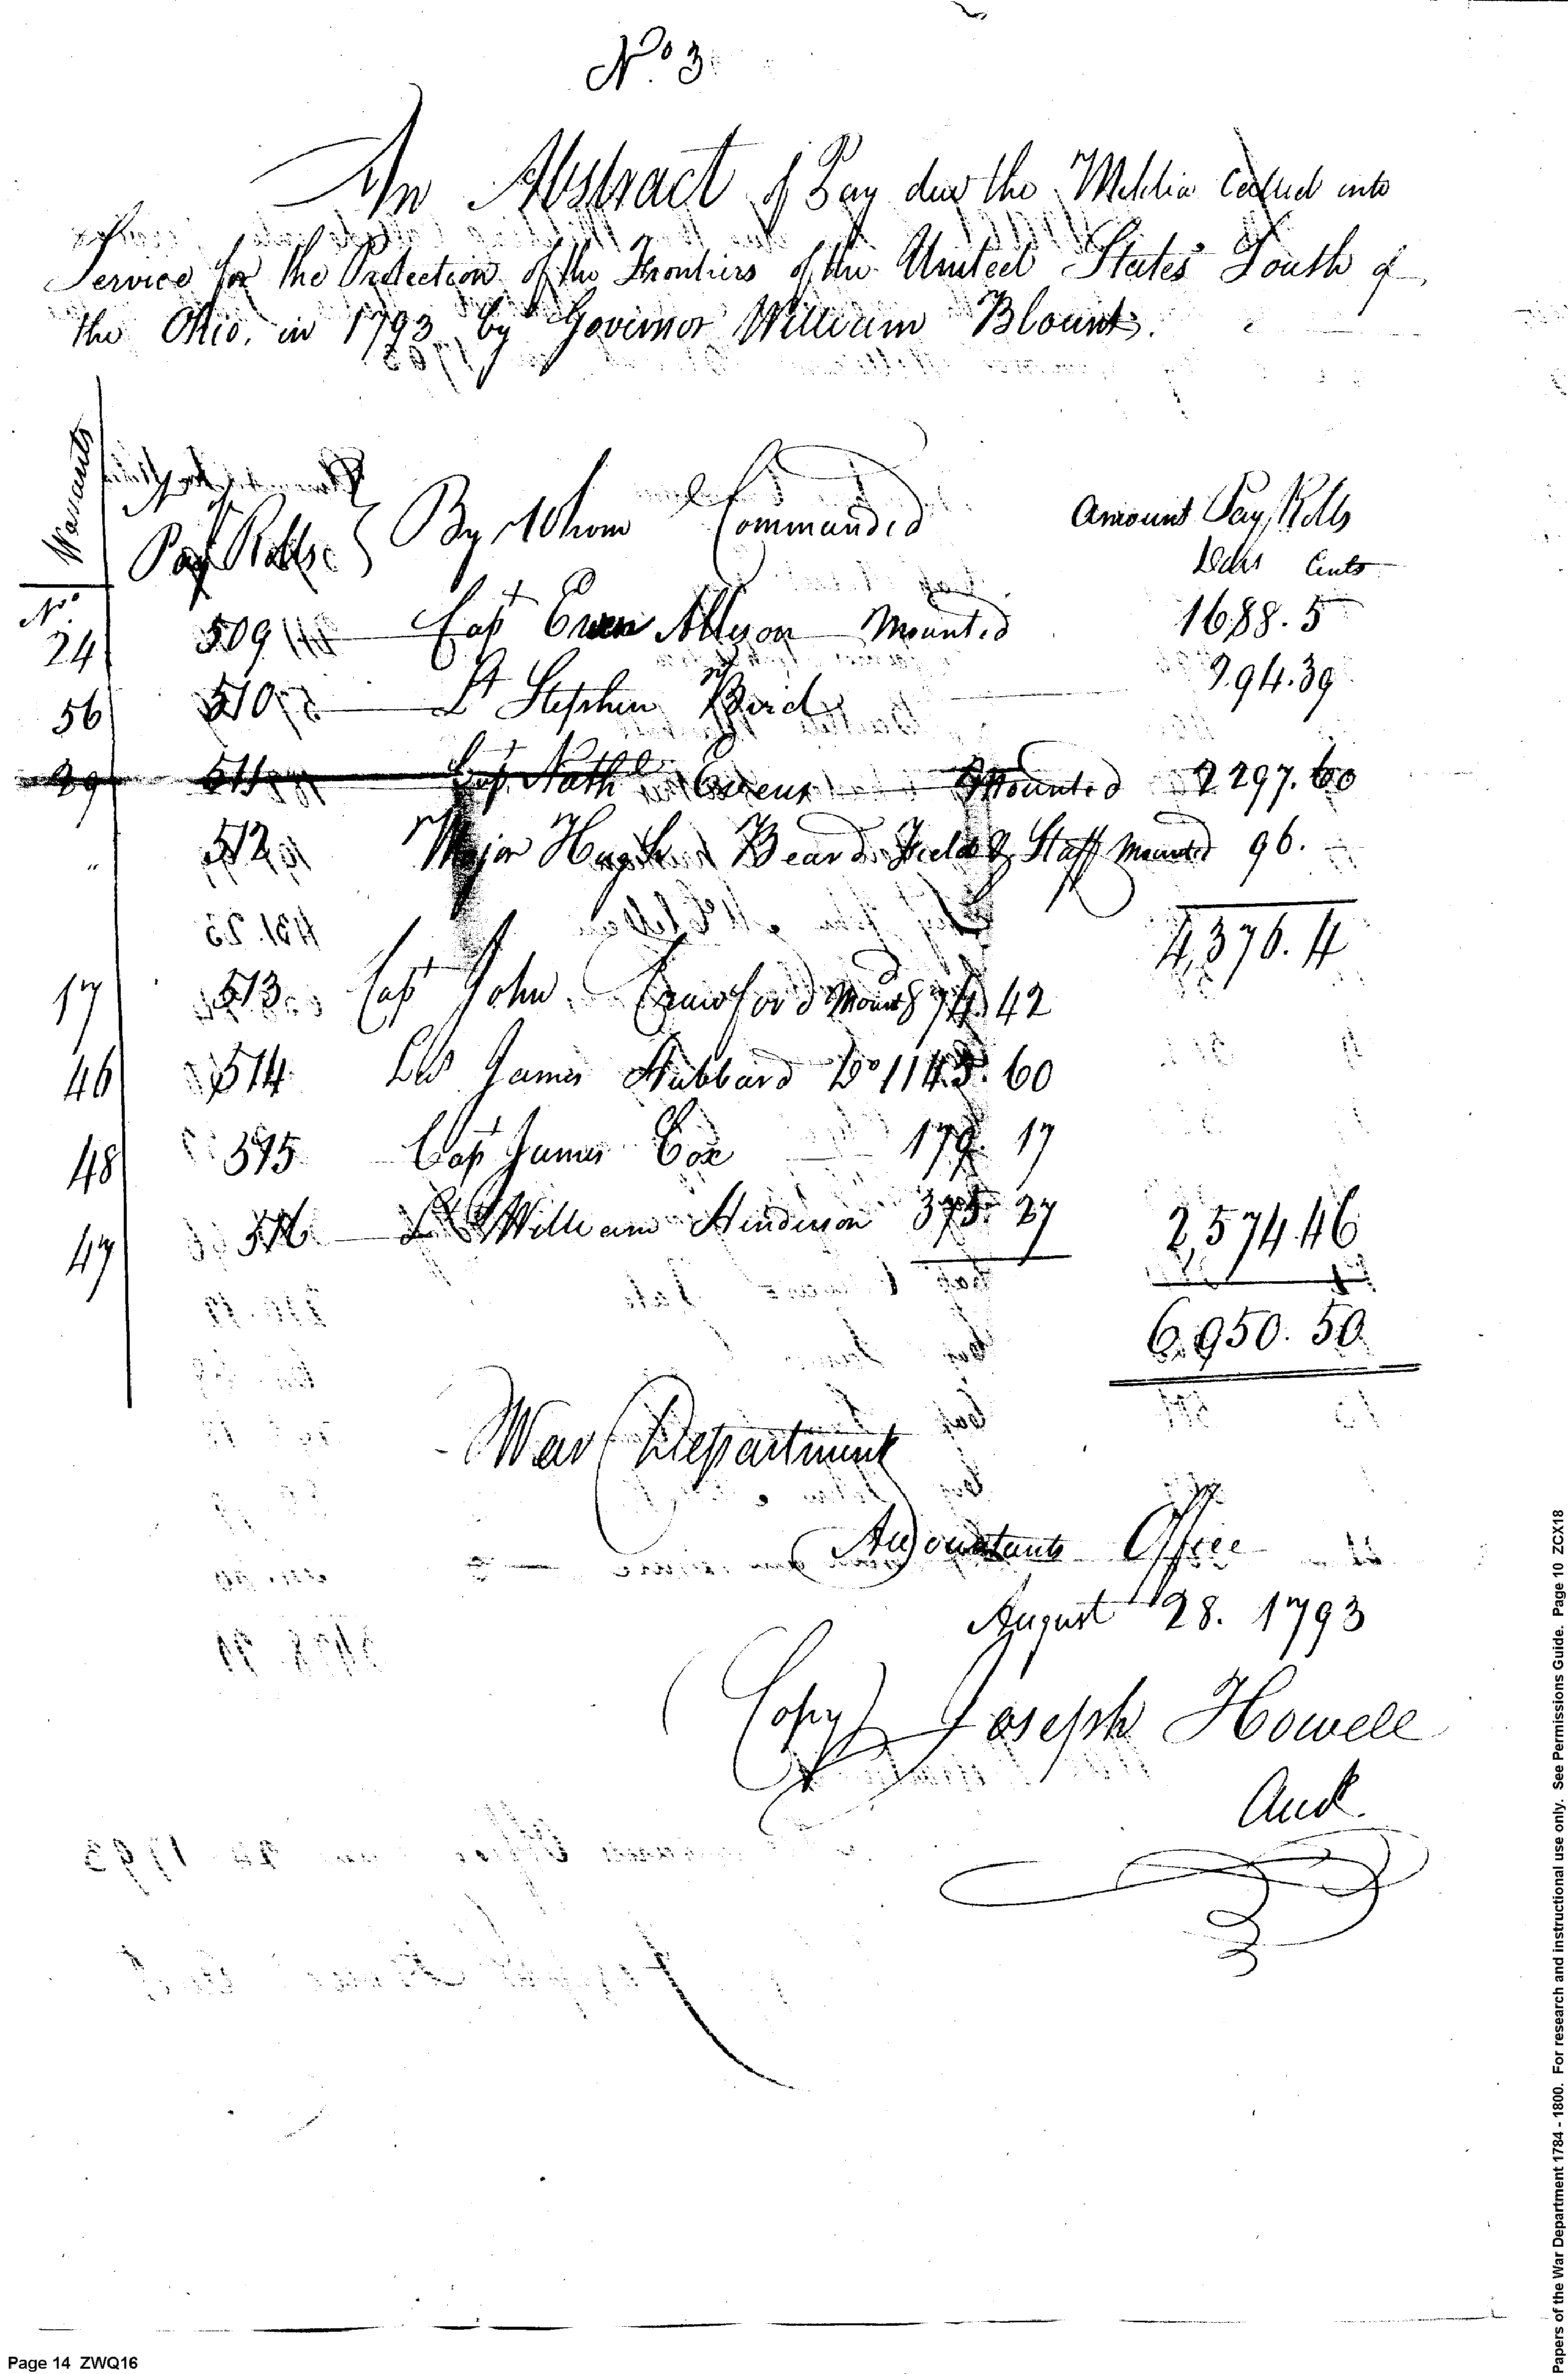 No. 3
An Abstract of Pay due the Militia Called into
Service for the Protection of the Frontiers of the United States South of
the Ohio, in 1793, by Governor William Blount.
Warrants
No. of Pay Rolls } By Whom Commanded Amount Pay Rolls
Dolls Cents
No.
24 509 Capt Allison Mounted 1688. 5
56 510 Lt Stephen Bird 294.39
29 511 Capt Nathl Evens Mounted 2297.60
" 512 Major Hugh Beard Field & Staff Mounted 96.
4,376. 4
17 513 Capt John Crawford Mound 874. 42
46 514 Lt James Hubbard Do 1145. 60
48 515 Capt James Cox 179. 17
47 516 Lt William Henderson 375. 27 2,574.46
6,950. 50
War Department
Accountants Office
August 28. 1793
(Copy) Joseph Howell
Acct.
Page 14 ZWQ16
Papers of the War Department 1784 - 1800. For research and instructional use only. See Permissions Guide. Page 10 ZCX18